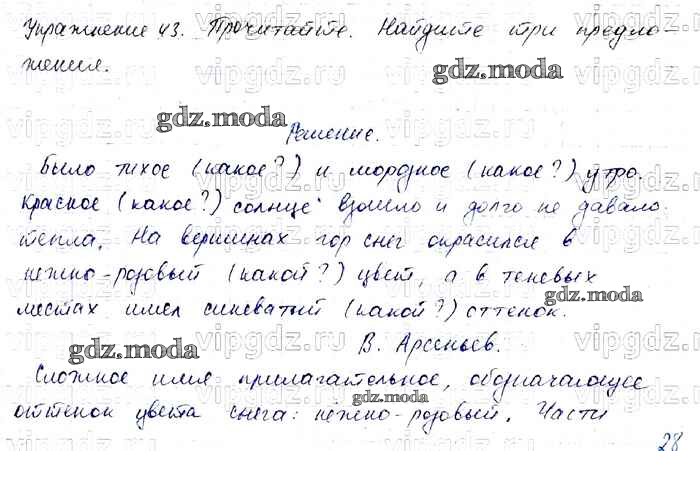 Упражнение 43. Прочитайте. Найдите три предло-
жения.
gdz.moda
gdz.moda
Решение.
Было тихое (какое?) и морозное (какое?) утро.
Красное (какое?) солнце взошло и долго не давало
тепла. На вершинах гор снег окрасился в
нежно-розовый (какой?) цвет, а в теневых
местах имел синеватый (какой?) оттенок.
gdz.moda
В. Арсеньев.
gdz.moda
Сложное имя прилагательное, обозначающее
оттенок цвета снега: нежно-розовый. Части
28